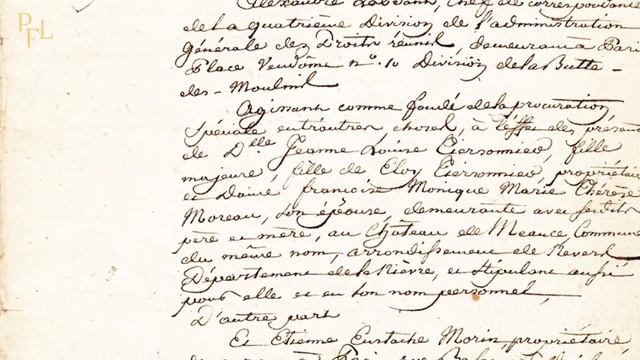 PFL
Chef de correspondance
de la quatrième Division de l'administration
Générale des Droits réunis, demeurant à Paris
Place Vendôme n.o 10 Division de la Butte-
des-Moulins
Agissant comme fondé de la procuration
Spéciale entr'autres choses, à l'effet des présentes
de D.lle Jeanne Louise Ciersonnier, fille
majeure, fille de Eloy Ciersonnier, propriétaire
et Dame françoise Monique Marie Thérèse
Moreau, son épouse, demeurante avec sesdits
père et mère, au Château de Meauce, Commune
du même nom, arrondissement de Nevers
Département de la Nièvre, et Stipulant aussi
pour elle et en son nom personnel,
D'autre part
Et Etienne Eustache Morin, propriétaire